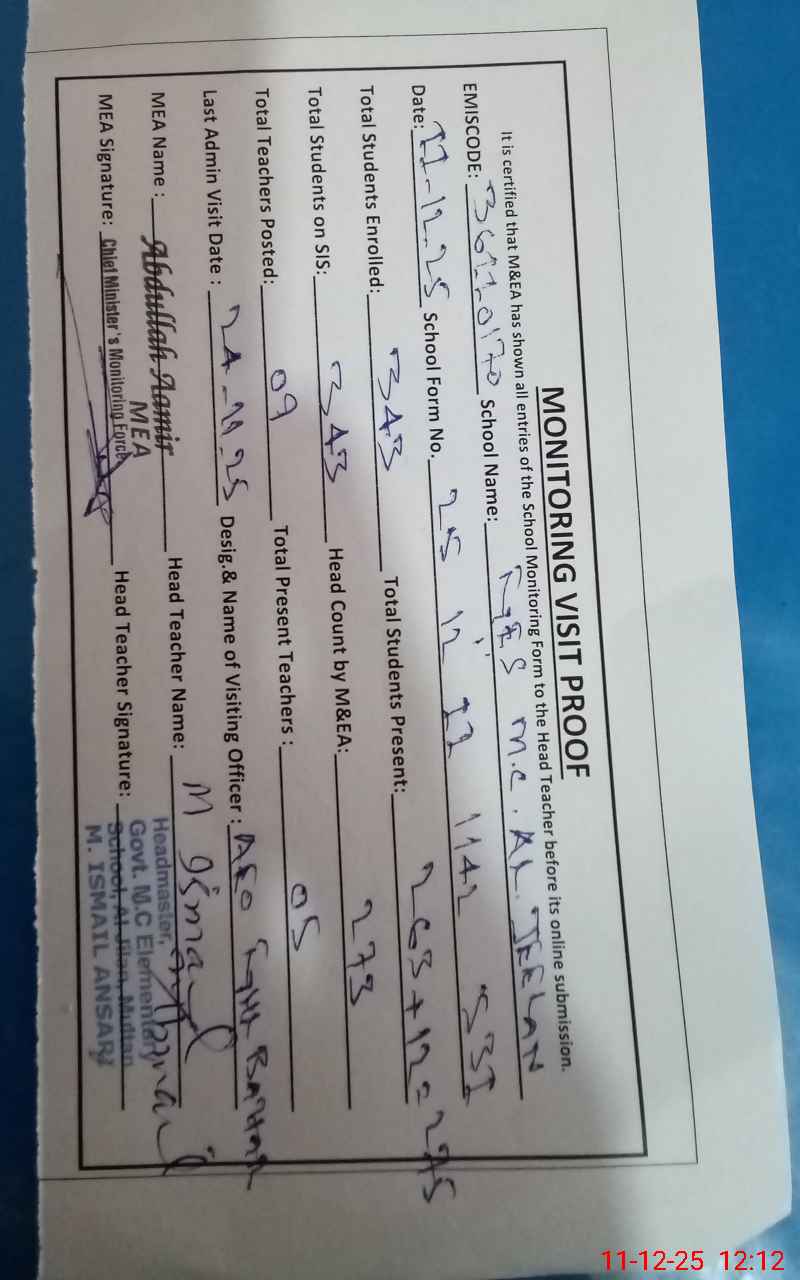 MONITORING VISIT PROOF
It is certified that M&EA has shown all entries of the School Monitoring Form to the Head Teacher before its online submission.
EMISCODE: School Name: M.C. AL. JEELAN
Date: 11-12.25 School Form No. 25 12 11 1142 531
Total Students Enrolled: 343 Total Students Present: 263+12=275
Total Students on SIS: 343 Head Count by M&EA: 273
Total Teachers Posted: 09 Total Present Teachers : 05
Last Admin Visit Date : 24-11.25 Desig.& Name of Visiting Officer : AEO
MEA Name : Abdullah Aamir Head Teacher Name: M Ismail
MEA
MEA Signature: Chief Minister's Monitoring Force Head Teacher Signature:
Headmaster,
Govt. M.C Elementary
School, Al Jilan, Multan
M. ISMAIL ANSARI
11-12-25 12:12